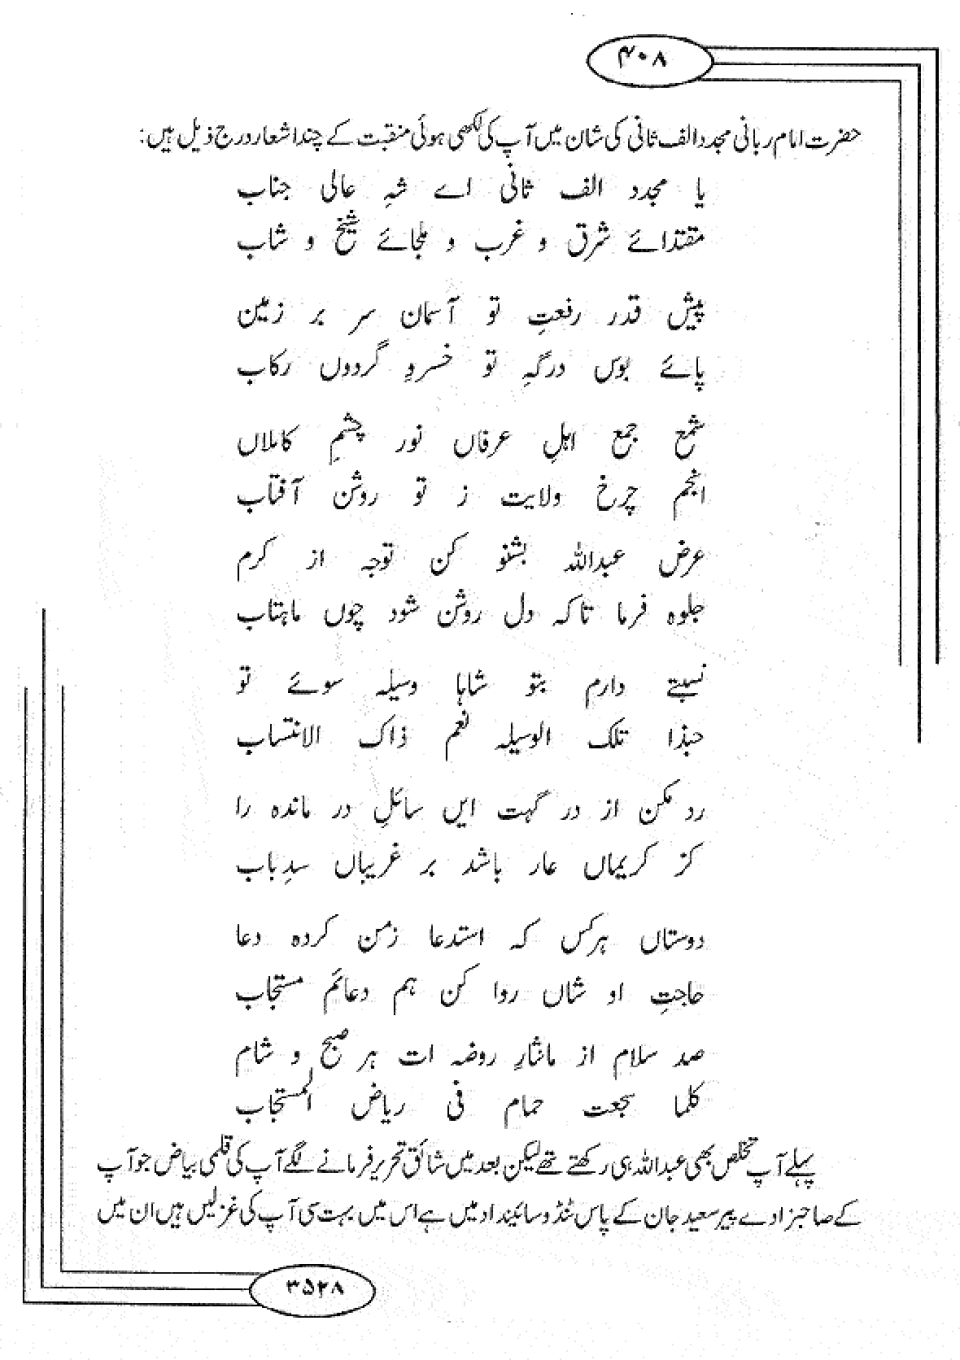 ۴۰۸
حضرت امام ربانی مجدد الف ثانی کی شان میں آپ کی لکھی ہوئی منقبت کے چند اشعار درج ذیل ہیں:
یا مجدد الف ثانی اے شہِ عالی جناب
مقتدائے شرق و غرب و ملجائے شیخ و شاب
پیش قدر رفعتِ تو آسمان سر بر زمین
پائے بُوس درگہِ تو خسروِ گردوں رکاب
شمع جمع اہلِ عرفاں نور چشمِ کاملاں
انجم چرخ ولایت ز تو روشن آفتاب
عرض عبداللہ بشنو کن توجہ از کرم
جلوہ فرما تاکہ دل روشن شود چوں ماہتاب
نسبتے دارم بتو شاہا وسیلہ سوئے تو
حبذا تلک الوسیلہ نعم ذاک الانتساب
رد مکن از در گہت ایں سائلِ در ماندہ را
کز کریماں عار باشد بر غریباں سدِ باب
دوستاں ہرکس کہ استدعا زمن کردہ دعا
حاجتِ او شاں روا کن ہم دعائم مستجاب
صد سلام از مانثارِ روضہ ات ہر صبح و شام
کلما سجعت حمام فی ریاض المستجاب
پہلے آپ تخلص بھی عبداللہ ہی رکھتے تھے لیکن بعد میں شائق تحریر فرمانے لگے آپ کی قلمی بیاض جو آپ
کے صاحبزادے پیر سعید جان کے پاس ٹنڈو سائینداد میں ہے اس میں بہت سی آپ کی غزلیں ہیں ان میں
۳۵۲۸